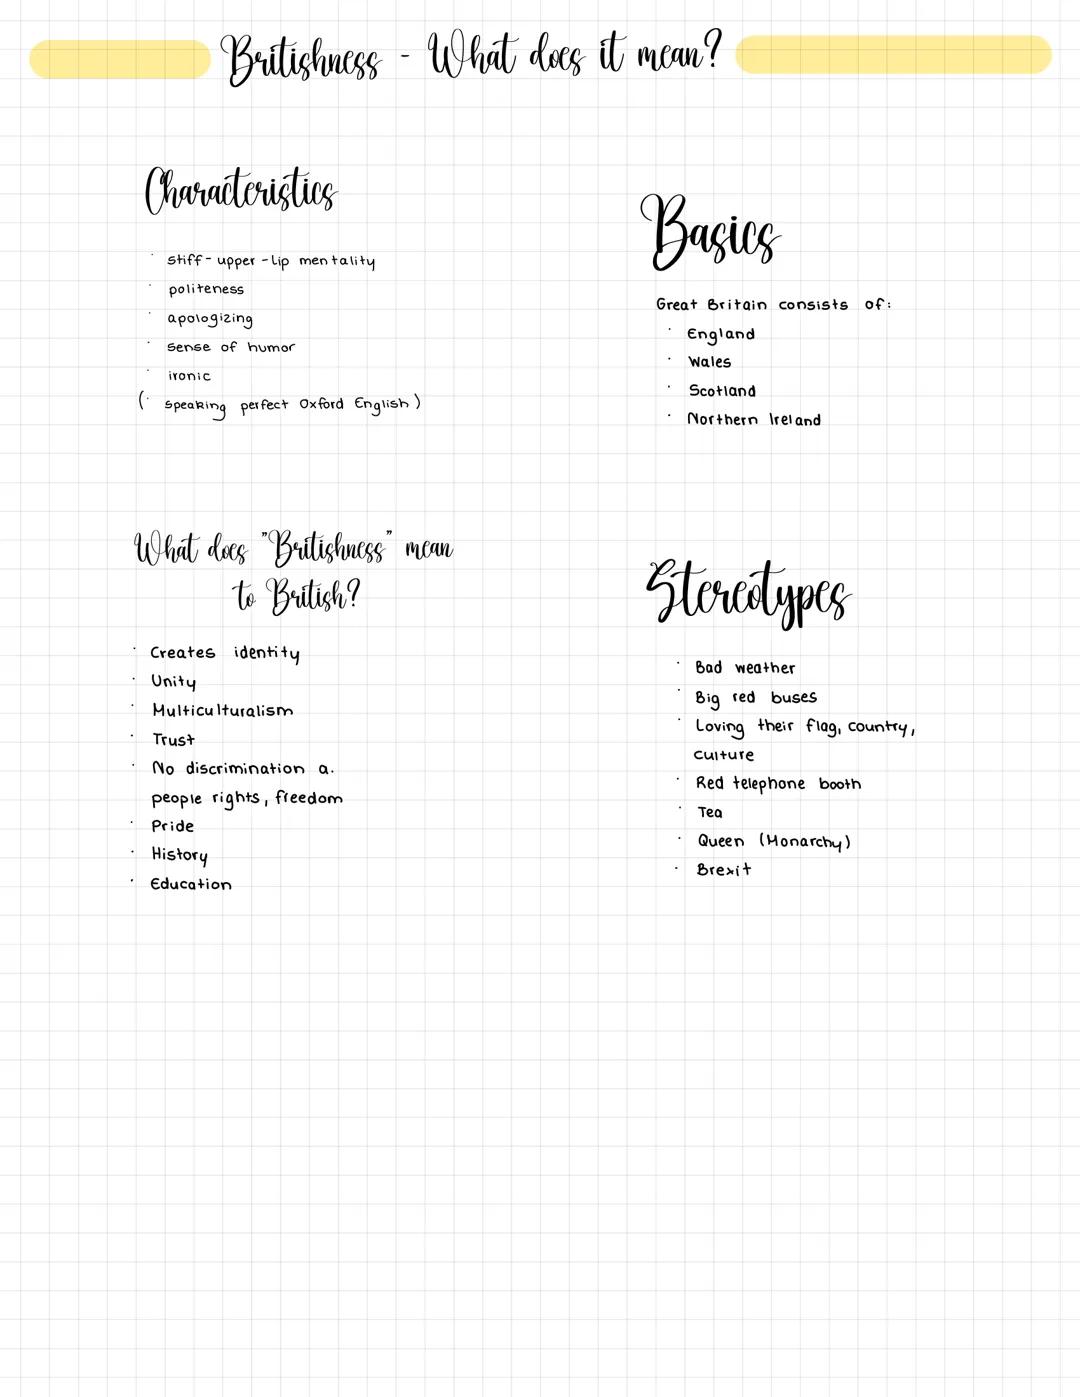 Britishness - What does it mean?
Characteristics
· stiff-upper-lip mentality
· politeness
· apologizing
· sense of humor
· ironic
(· speaking perfect Oxford English)
Basics
Great Britain consists of:
· England
· Wales
· Scotland
· Northern Ireland
What does "Britishness" mean
to British?
· Creates identity
· Unity
· Multiculturalism
· Trust
· No discrimination a.
people rights, freedom
· Pride
· History
· Education
Stereotypes
· Bad weather
· Big red buses
· Loving their flag, country,
culture
· Red telephone booth
· Tea
· Queen (Monarchy)
· Brexit